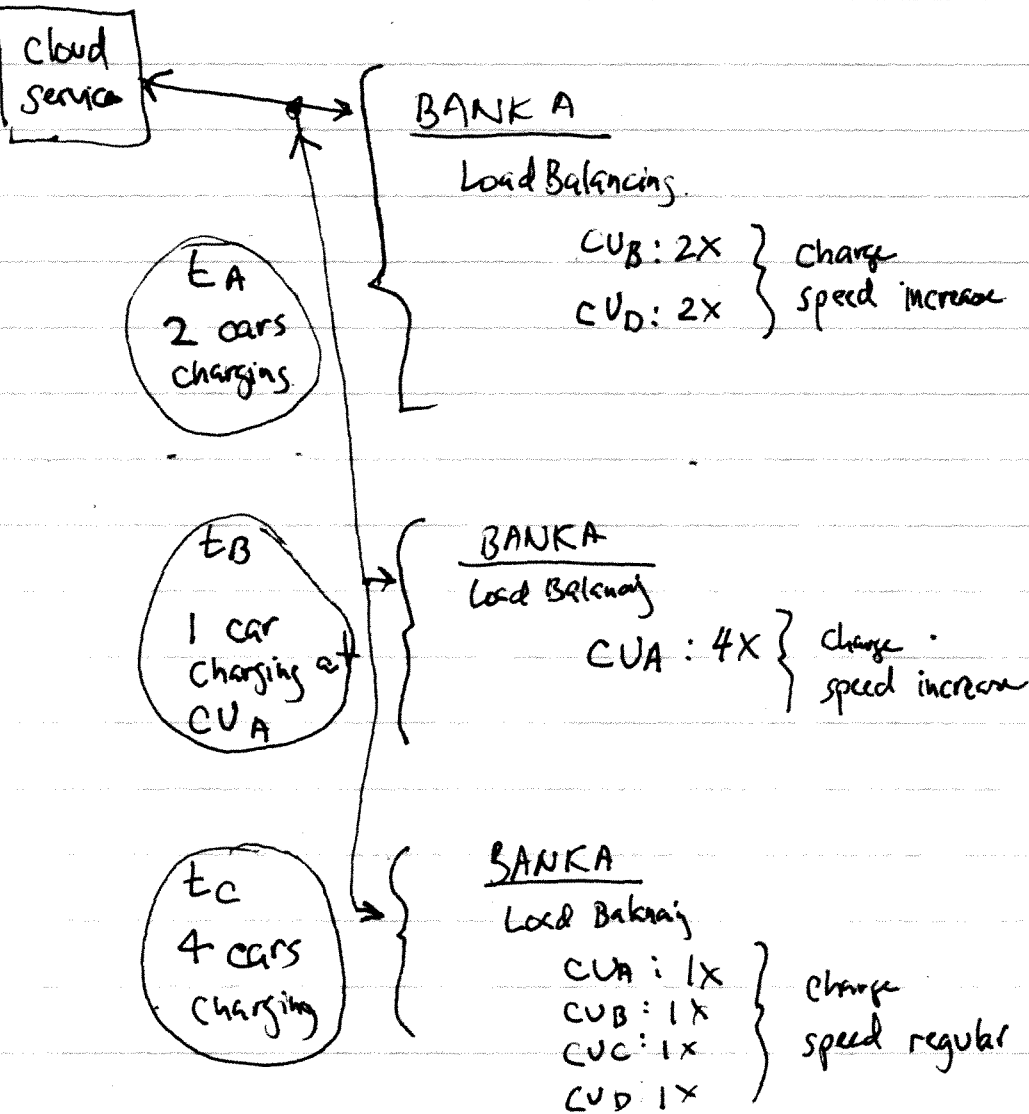 Cloud
Service
BANK A
Load Balancing
CUB: 2X
CUD: 2X
Charge
speed increase
tA
2 cars
charging
tB
1 car
charging at
CUA
BANKA
Load Balancing
CUA: 4X
Charge
speed increase
tC
4 cars
charging
BANKA
Load Balancing
CUA: 1X
CUB: 1X
CUC: 1X
CUD 1X
Charge
speed regular